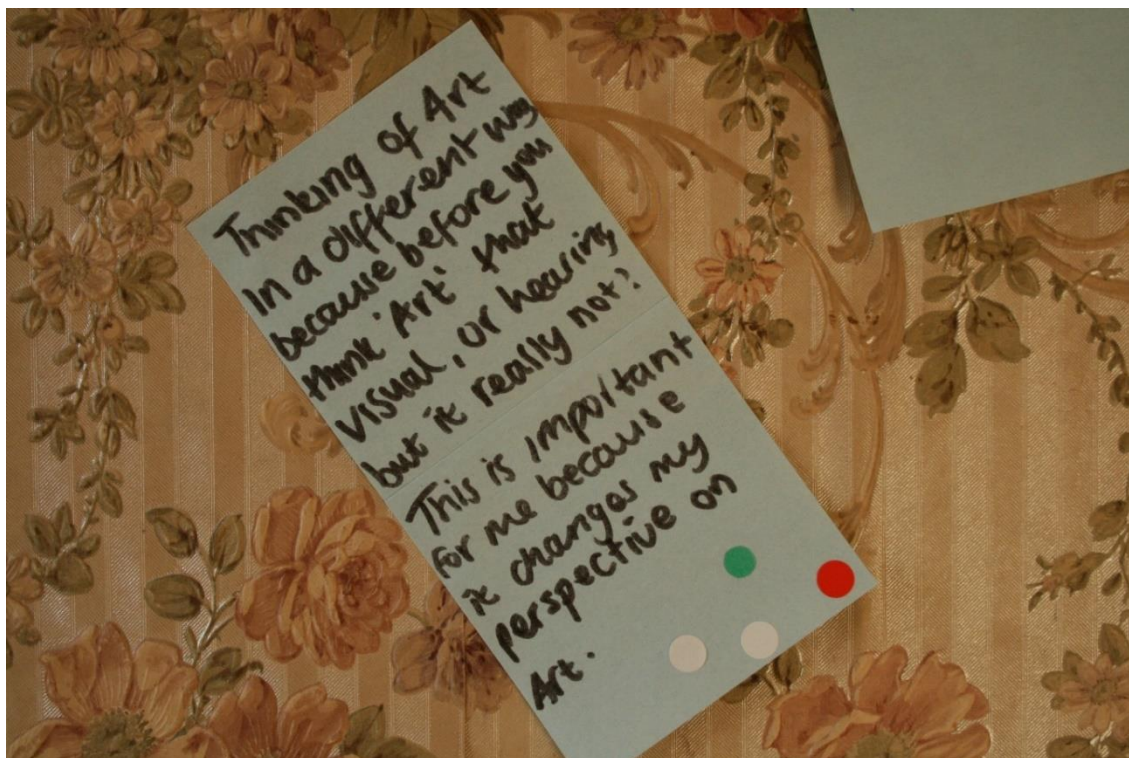 Thinking of Art
In a different way
because before you
think 'Art' that
visual, or hearing,
but it really not?
This is important
for me because
it changes my
perspective on
Art.